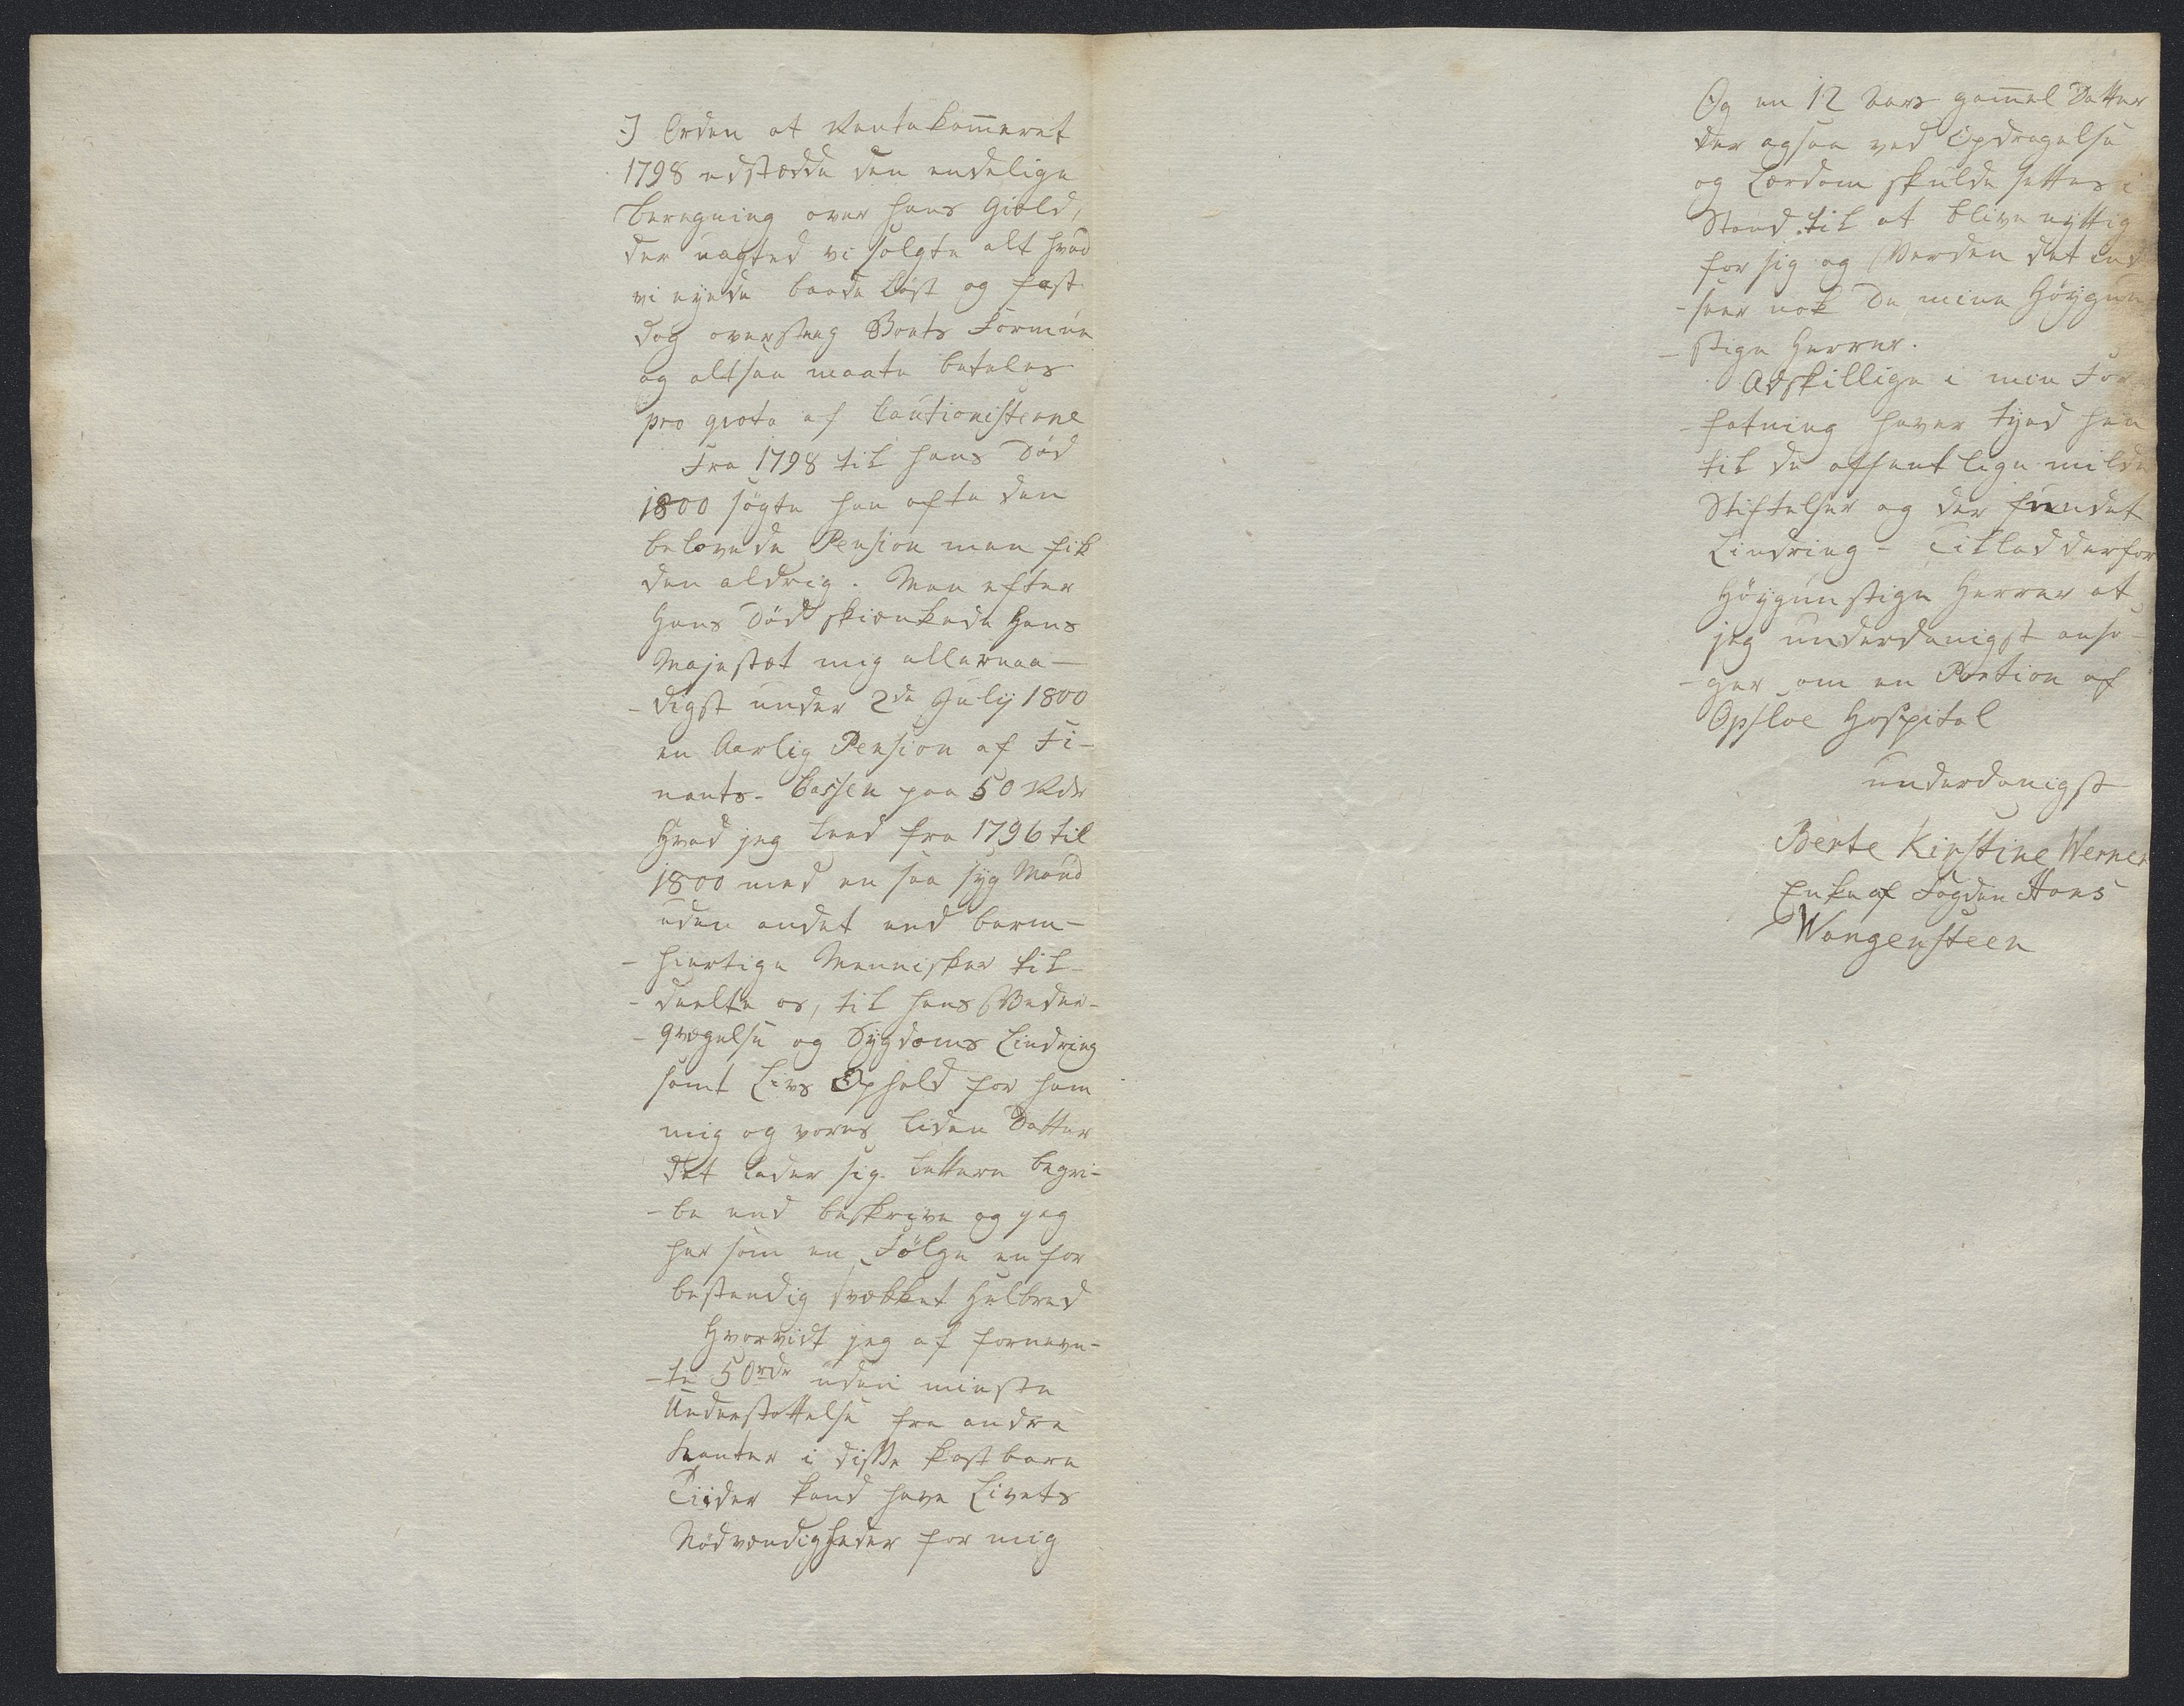 I Orden at Rentekam̅eret
1798 udstædde den endelige
beregning over hans Giæld,
der uagted vi solgte alt hvad
vi eyede baade løst og fast
dog oversteeg Boets Formue
og altsaa maate betales
pro qvota af Cautionisterne
Fra 1798 til hans Død
1800 søgte han ofte den
belovede Pension men fik
den aldrig. Men efter
Hans Død skiænkede Hans
Majestæt mig allernaa-
-digst under 2de Julij 1800
en Aarlig Pension af Fi-
nants-Cassen paa 50 Rdr
Hvad jeg leed fra 1796 til
1800 med en saa syg Mand
uden andet end barm-
-hiertige Mennisker til-
-deelte os, til hans Veder-
-qvægelse og Sygdoms Lindring
samt Livs Ophold for ham
mig og vores liden Datter
det lader sig lettere begri-
-be end beskrive og jeg
har som en Følge en for
bestendig svækket Helbred
Hvorvidt jeg af fornevn-
-te 50 rdr uden minste
Understøttelse fra andre
Kanter i disse kostbare
Tiider kand have Livets
Nødvendigheder for mig
Og en 12 Aars gam̅el Datter
der ogsaa ved Opdragelse
og Lærdom skulde settes i
Stand til at blive nyttig
for sig og Verden det ind
-seer nok De mine Høygun
-stige Herrer.
Adskillige i min For
-fatning haver tyed hen
til de offentlige milde
Stiftelser og der fundet
Lindring - Tillad derfor
Høygunstige Herrer at
jeg underdanigst ansø-
-ger om en Portion af
Opsloe Hospital
underdanigst
Berte Kirstine Werner
Enke af Fogden Hans
Wangensteen